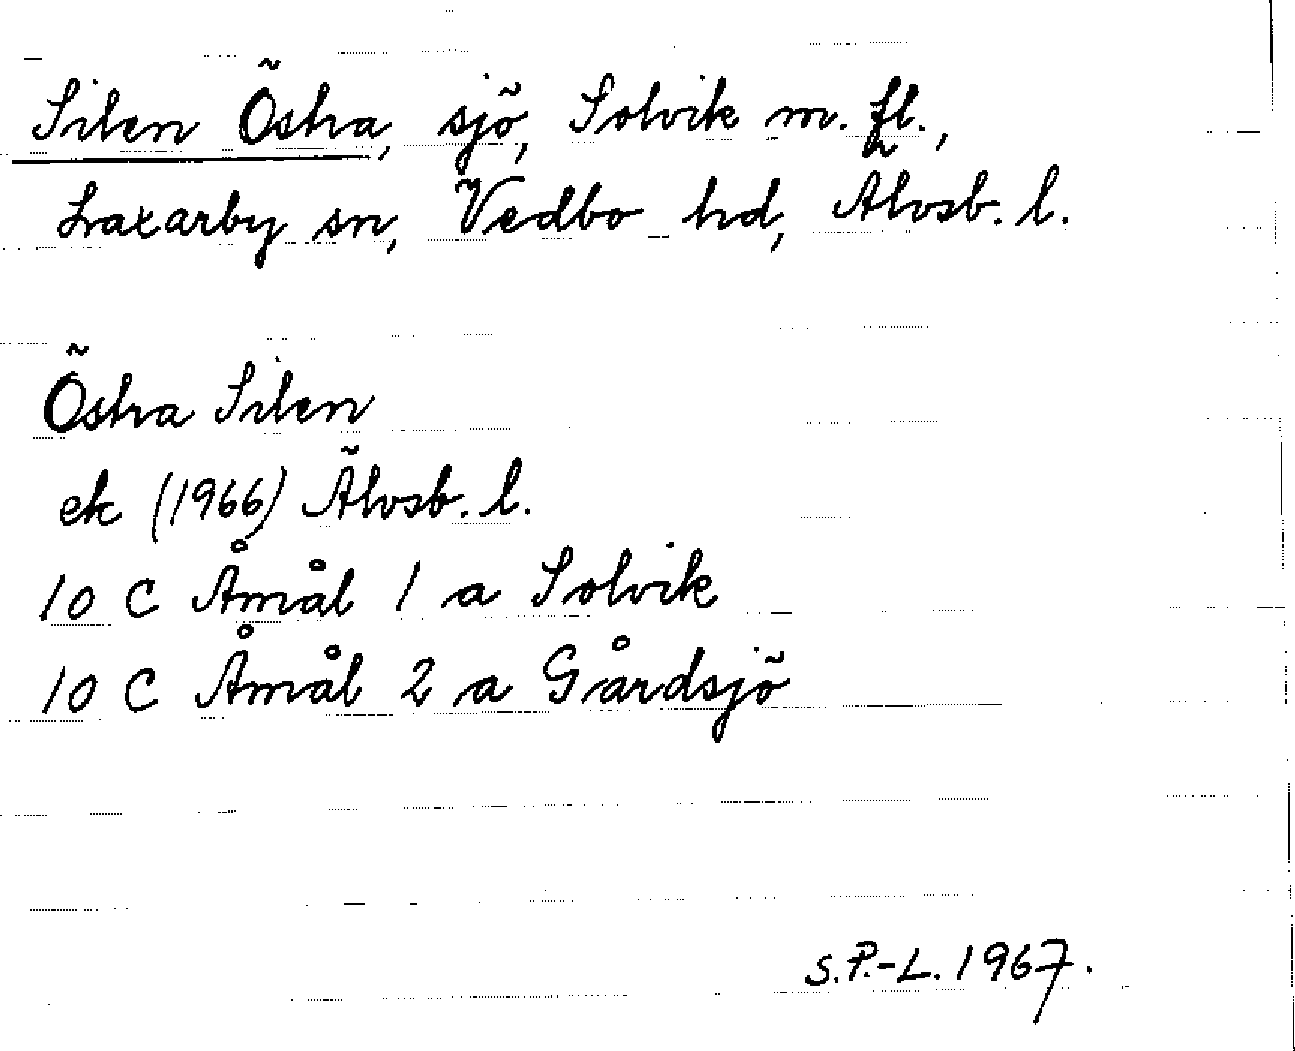 Silen Östra, sjö, Solvik m. fl.,
Laxarby sn, Vedbo hd, Älvsb. l.
Östra Silen
ek (1966) Älvsb. l.
10 C Åmål 1 a Solvik
10 C Åmål 2 a Gårdsjö
S.P.-L. 1967.